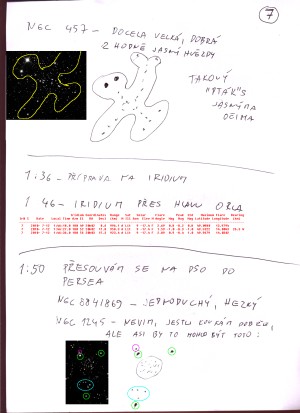 7
NGC 457 - DOCELA VELKÁ, DOBRÁ
2 HODNĚ JASNÝ HVĚZDY
TAKOVÝ
"PTÁK" S
JASNÝMA
OČIMA
1:36 - PŘÍPRAVA NA IRIDIUM
1 46 - IRIDIUM PŘES HLAVU ORLA
1:50 PŘESOUVÁM SE NA DSO DO
PERSEA
NGC 884/869 - JEDNODUCHÝ, HEZKÝ
NGC 1245 - NEVÍM, JESTLI KOUKÁM DOBŘE,
ALE ASI BY TO MOHLO BÝT TOTO: